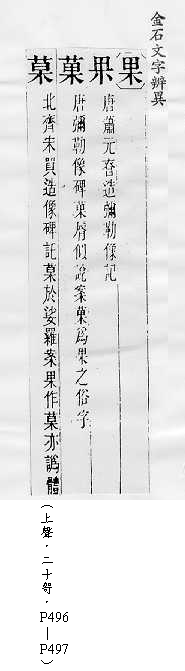 金石文字辨異
果
唐蕭元眘造彌勒像記
菓
唐彌勒像碑菓脣似説案菓爲果之俗字
菒
北齊宋買造像碑託菒於娑羅案果作菒亦譌體
（上聲．二十哿．P496－P497）